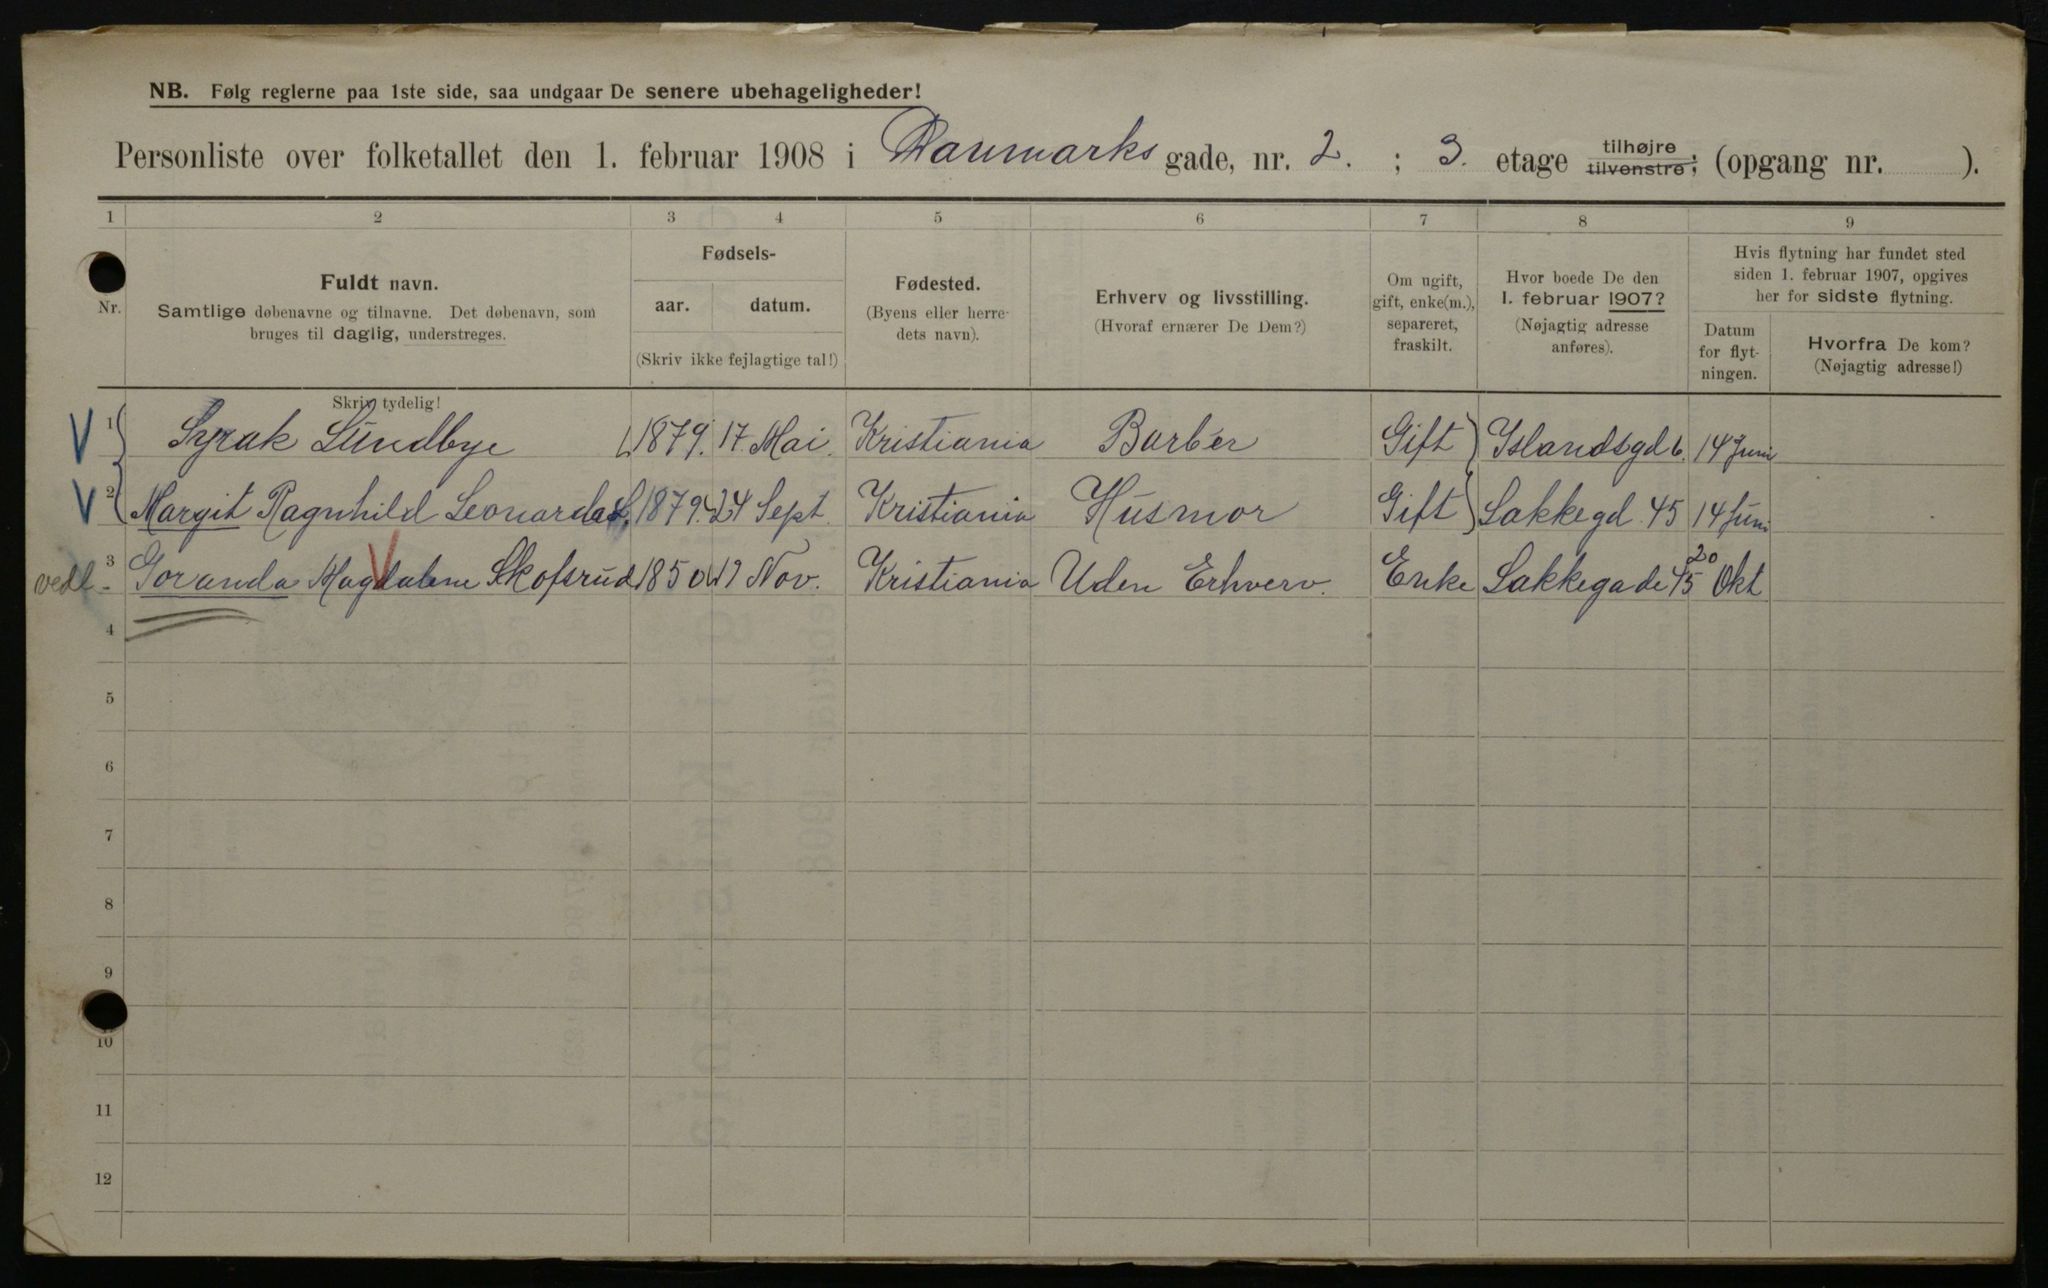 NB. Følg reglerne paa 1ste side, saa undgaar De senere ubehageligheder!
Personliste over folketallet den 1. februar 1908 i Danmarks gade, nr. 2. ; 3. etage tilhøjre tilvenstre; (opgang nr. ).
1 2 3 4 5 6 7 8 9
Nr. Fuldt navn. Samtlige døbenavne og tilnavne. Det døbenavn, som bruges til daglig, understreges.
Fødsels-
aar. datum.
(Skriv ikke fejlagtige tal!)
Fødested.
(Byens eller herre-
dets navn).
Erhverv og livsstilling.
(Hvoraf ernærer De Dem?)
Om ugift,
gift, enke(m.),
separeret,
fraskilt.
Hvor boede De den
1. februar 1907?
(Nøjagtig adresse
anføres).
Hvis flytning har fundet sted
siden 1. februar 1907, opgives
her for sidste flytning.
Datum
for flyt-
ningen.
Hvorfra De kom?
(Nøjagtig adresse!)
Skriv tydelig!
V 1 Syrak Lundbye 1879. 17. Mai. Kristiania Barber Gift Islandsgd 6. 14 Juni
V 2 Margit Ragnhild Leonarda L. 1879. 24 Sept. Kristiania Husmor Gift Lakkegd. 45 14 Juni
vedl. 3 Goranda Magdalene Skofsrud 1850 19 Nov. Kristiania Uden Erhverv. Enke Lakkegade 45 20 Okt
4
5
6
7
8
9
10
11
12